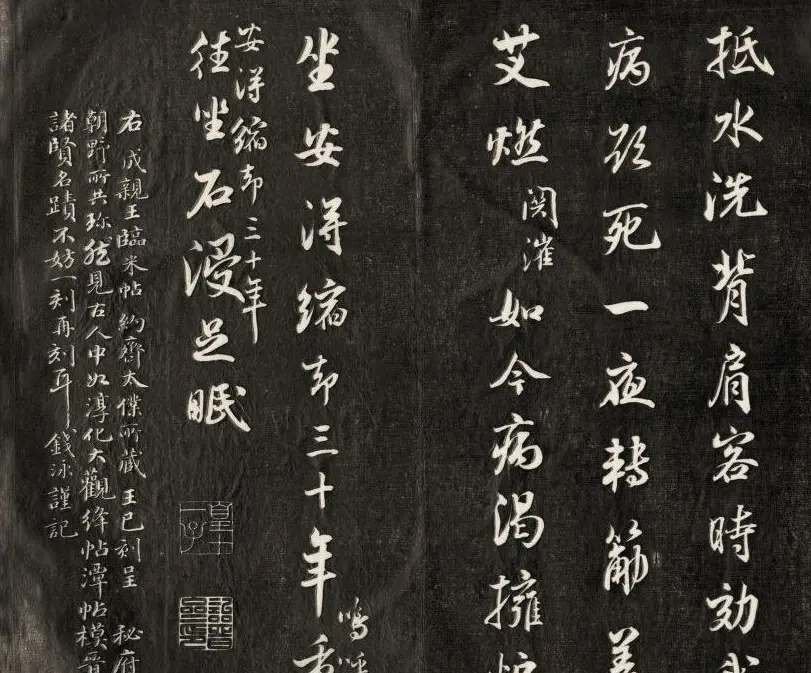 抵水洗背肩客時効
病 死一夜轉筋
艾燃
関漼
如今病渴擁
坐安得縮却三十年
嗚呼
安得縮却三十年
往坐石浸足眠
右成親王臨米帖約齋太僕所藏王已刻呈秘府
朝野所共珍然見古人中如淳化大觀絳帖潭帖模晉
諸賢名蹟不妨一刻再刻耳 錢泳謹記